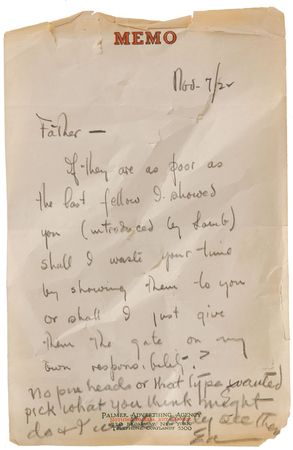 MEMO
Nov. 7/22
Father —
If they are as poor as
the last fellow I showed
you (introduced by Lamb)
shall I waste your time
by showing them to you
or shall I just give
them the gate on my
own responsibility?
No pin heads or that type wanted
pick what you think might
do & I see them
PALMER ADVERTISING AGENCY
NEW YORK
TELEPHONE CORTLANDT 5500